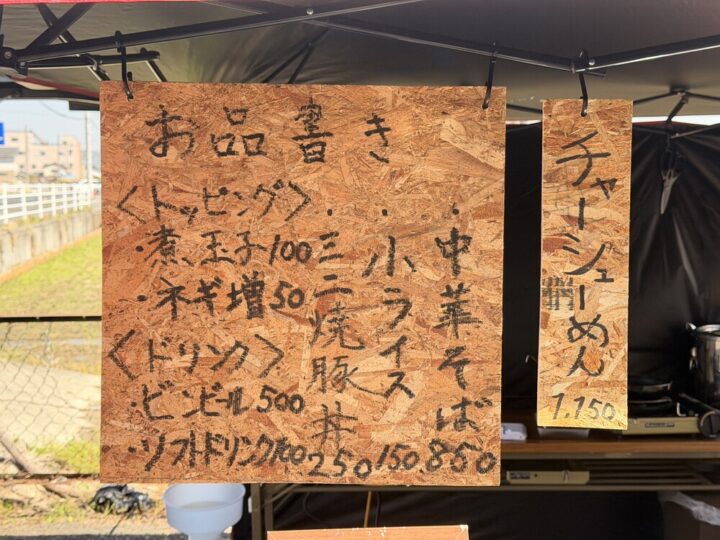 お品書き
・中華そば 850
・小ライス 150
・ミニ焼豚丼 250
〈トッピング〉
・煮玉子 100
・ネギ増 50
〈ドリンク〉
・ビンビール 500
・ソフトドリンク 100
チャーシューめん
1,150